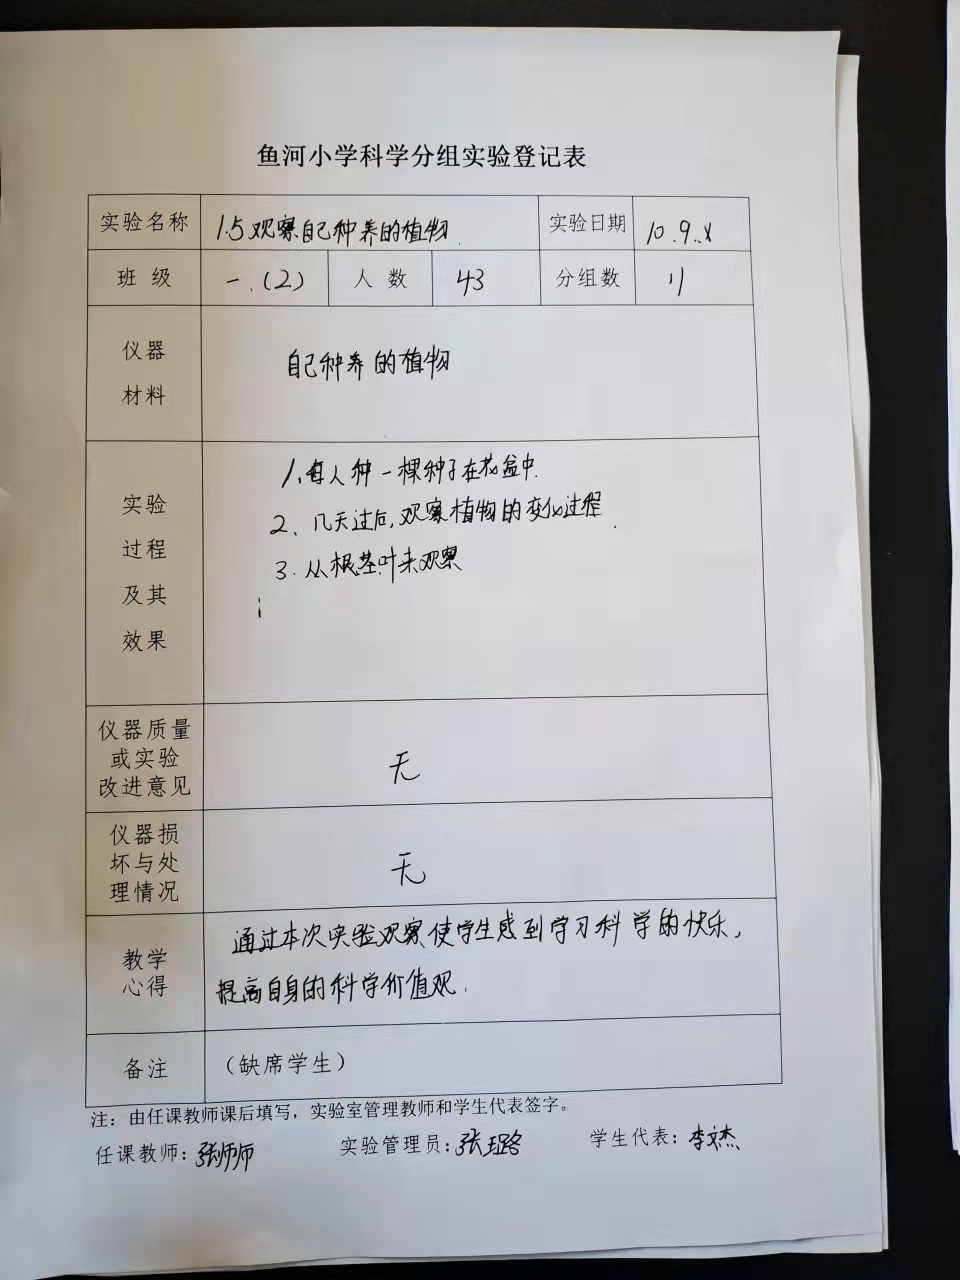 鱼河小学科学分组实验登记表
实验名称 1.5观察自己种养的植物 实验日期 10.9
班 级 一.(2) 人 数 43 分组数 11
仪器
材料
自己种养的植物
实验
过程
及其
效果
1.每人种一棵种子在花盆中.
2、几天过后,观察植物的变化过程.
3.从根茎叶来观察
仪器质量
或实验
改进意见
无
仪器损
坏与处
理情况
无
教学
心得
通过本次实验观察使学生感到学习科学的快乐,
提高自身的科学价值观.
备注 (缺席学生)
注：由任课教师课后填写，实验室管理教师和学生代表签字。
任课教师：张师师 实验管理员：张 路 学生代表：李文杰